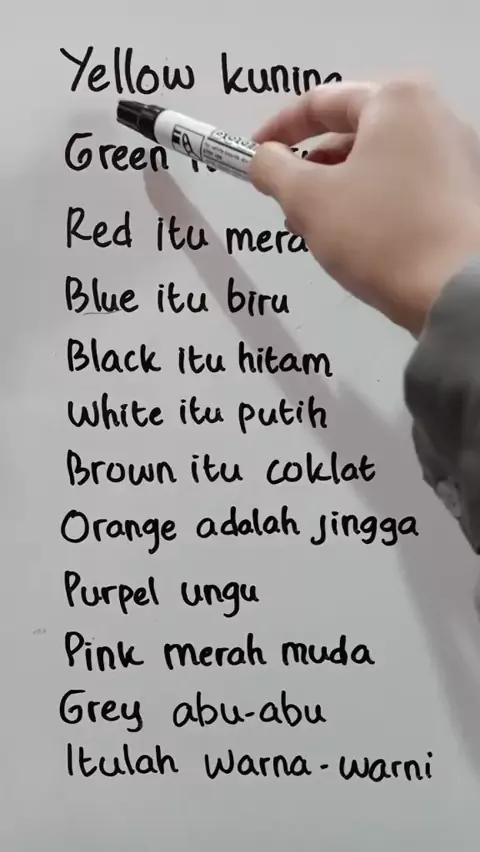 Yellow kuning
Green
Red itu
Blue itu biru
Black itu hitam
White itu putih
Brown itu coklat
Orange adalah jingga
Purpel ungu
Pink merah muda
Grey abu-abu
Itulah warna-warni